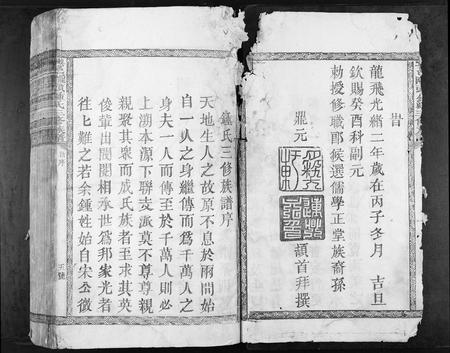 旹
龍飛光緒二年歲在丙子冬月 吉旦
欽賜癸酉科副元
勅授修職郎候選儒學正堂族裔孫
鼎元 頓首拜撰
鍾氏三修族譜序
天地生人之故原不息於兩間始
自一人之身繼傳而爲千萬人之
身夫一人而傳至於千萬人則必
上溯本源下聯支派莫不尊尊親
親聚其衆而成氏族者至求其英
俊輩出閥閱相承世爲邦家光者
往往難之若余鍾姓始自宋公微